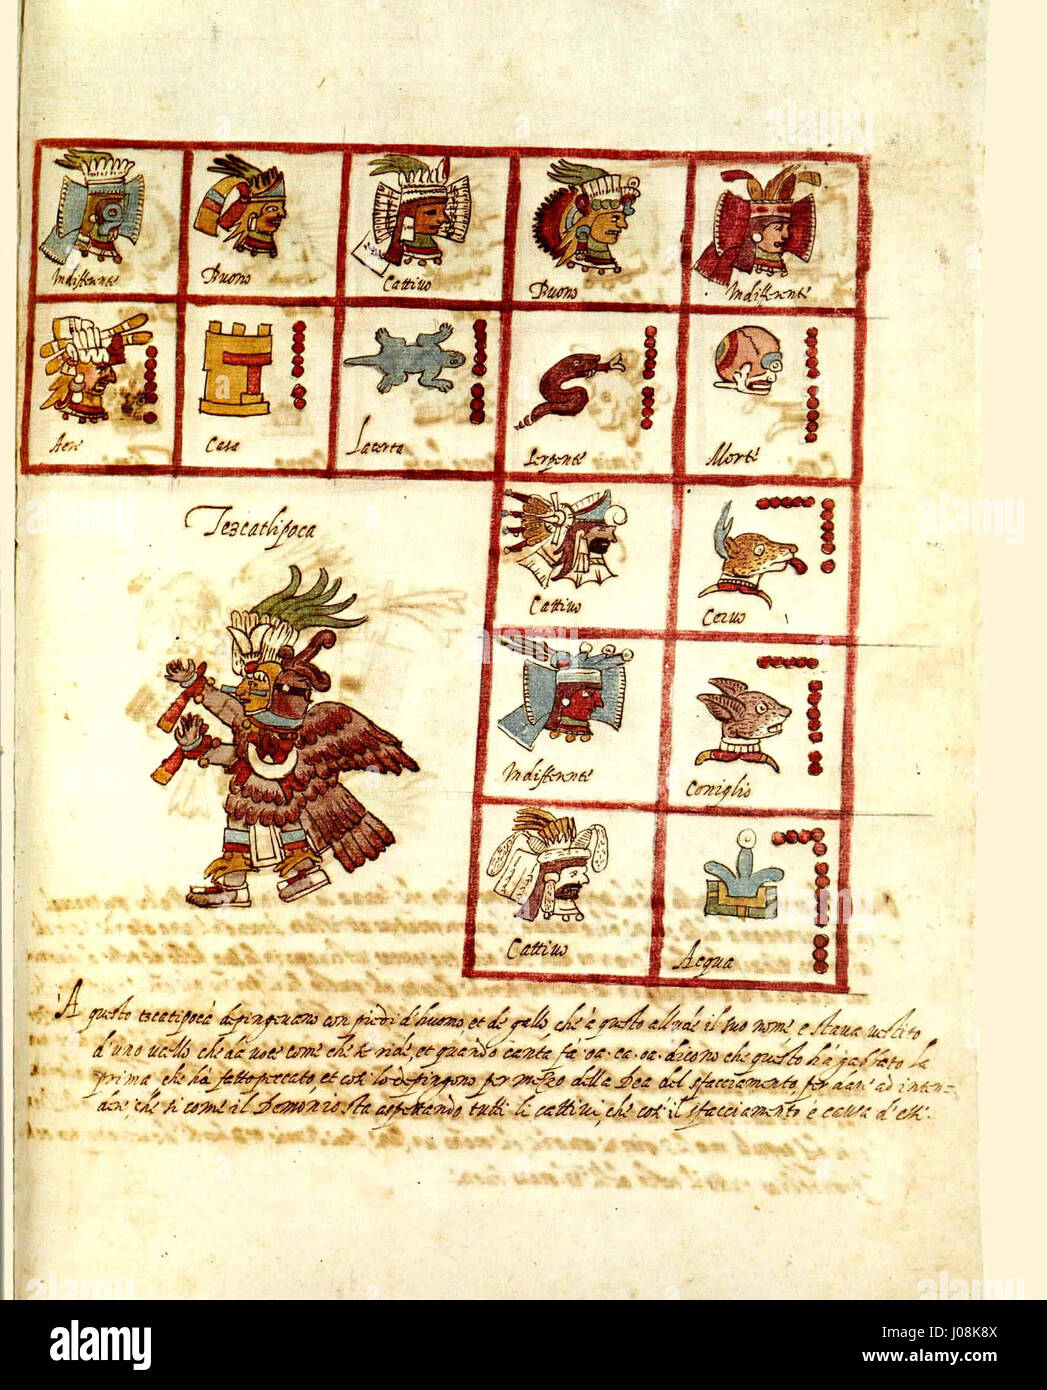 Indifferente Buono Cattivo Buono Indifferente
Aere Casa Lacerta Serpente Morte
Tezcatlipoca
Cattivo Cervo
Indifferente Coniglio
Cattivo Acqua
A questo tzcatlipoca depingevano con piedi d'huomo, et de gallo, che à questo allude il suo nome e stava vestito
d'uno uccello che dà voce come che se ride, et quando canta fà oa. ca. oa. dicono che questo hà gabbato la
prima che hà fatto peccato, et così lo depingono per mezzo della Dea del sfacciamento, per dare ad inten-
dere, che si come il Demonio sta aspettando tutti li cattivi, che così il sfacciamento è causa d'essi.
alamy
Image ID: J08K8X
www.alamy.com